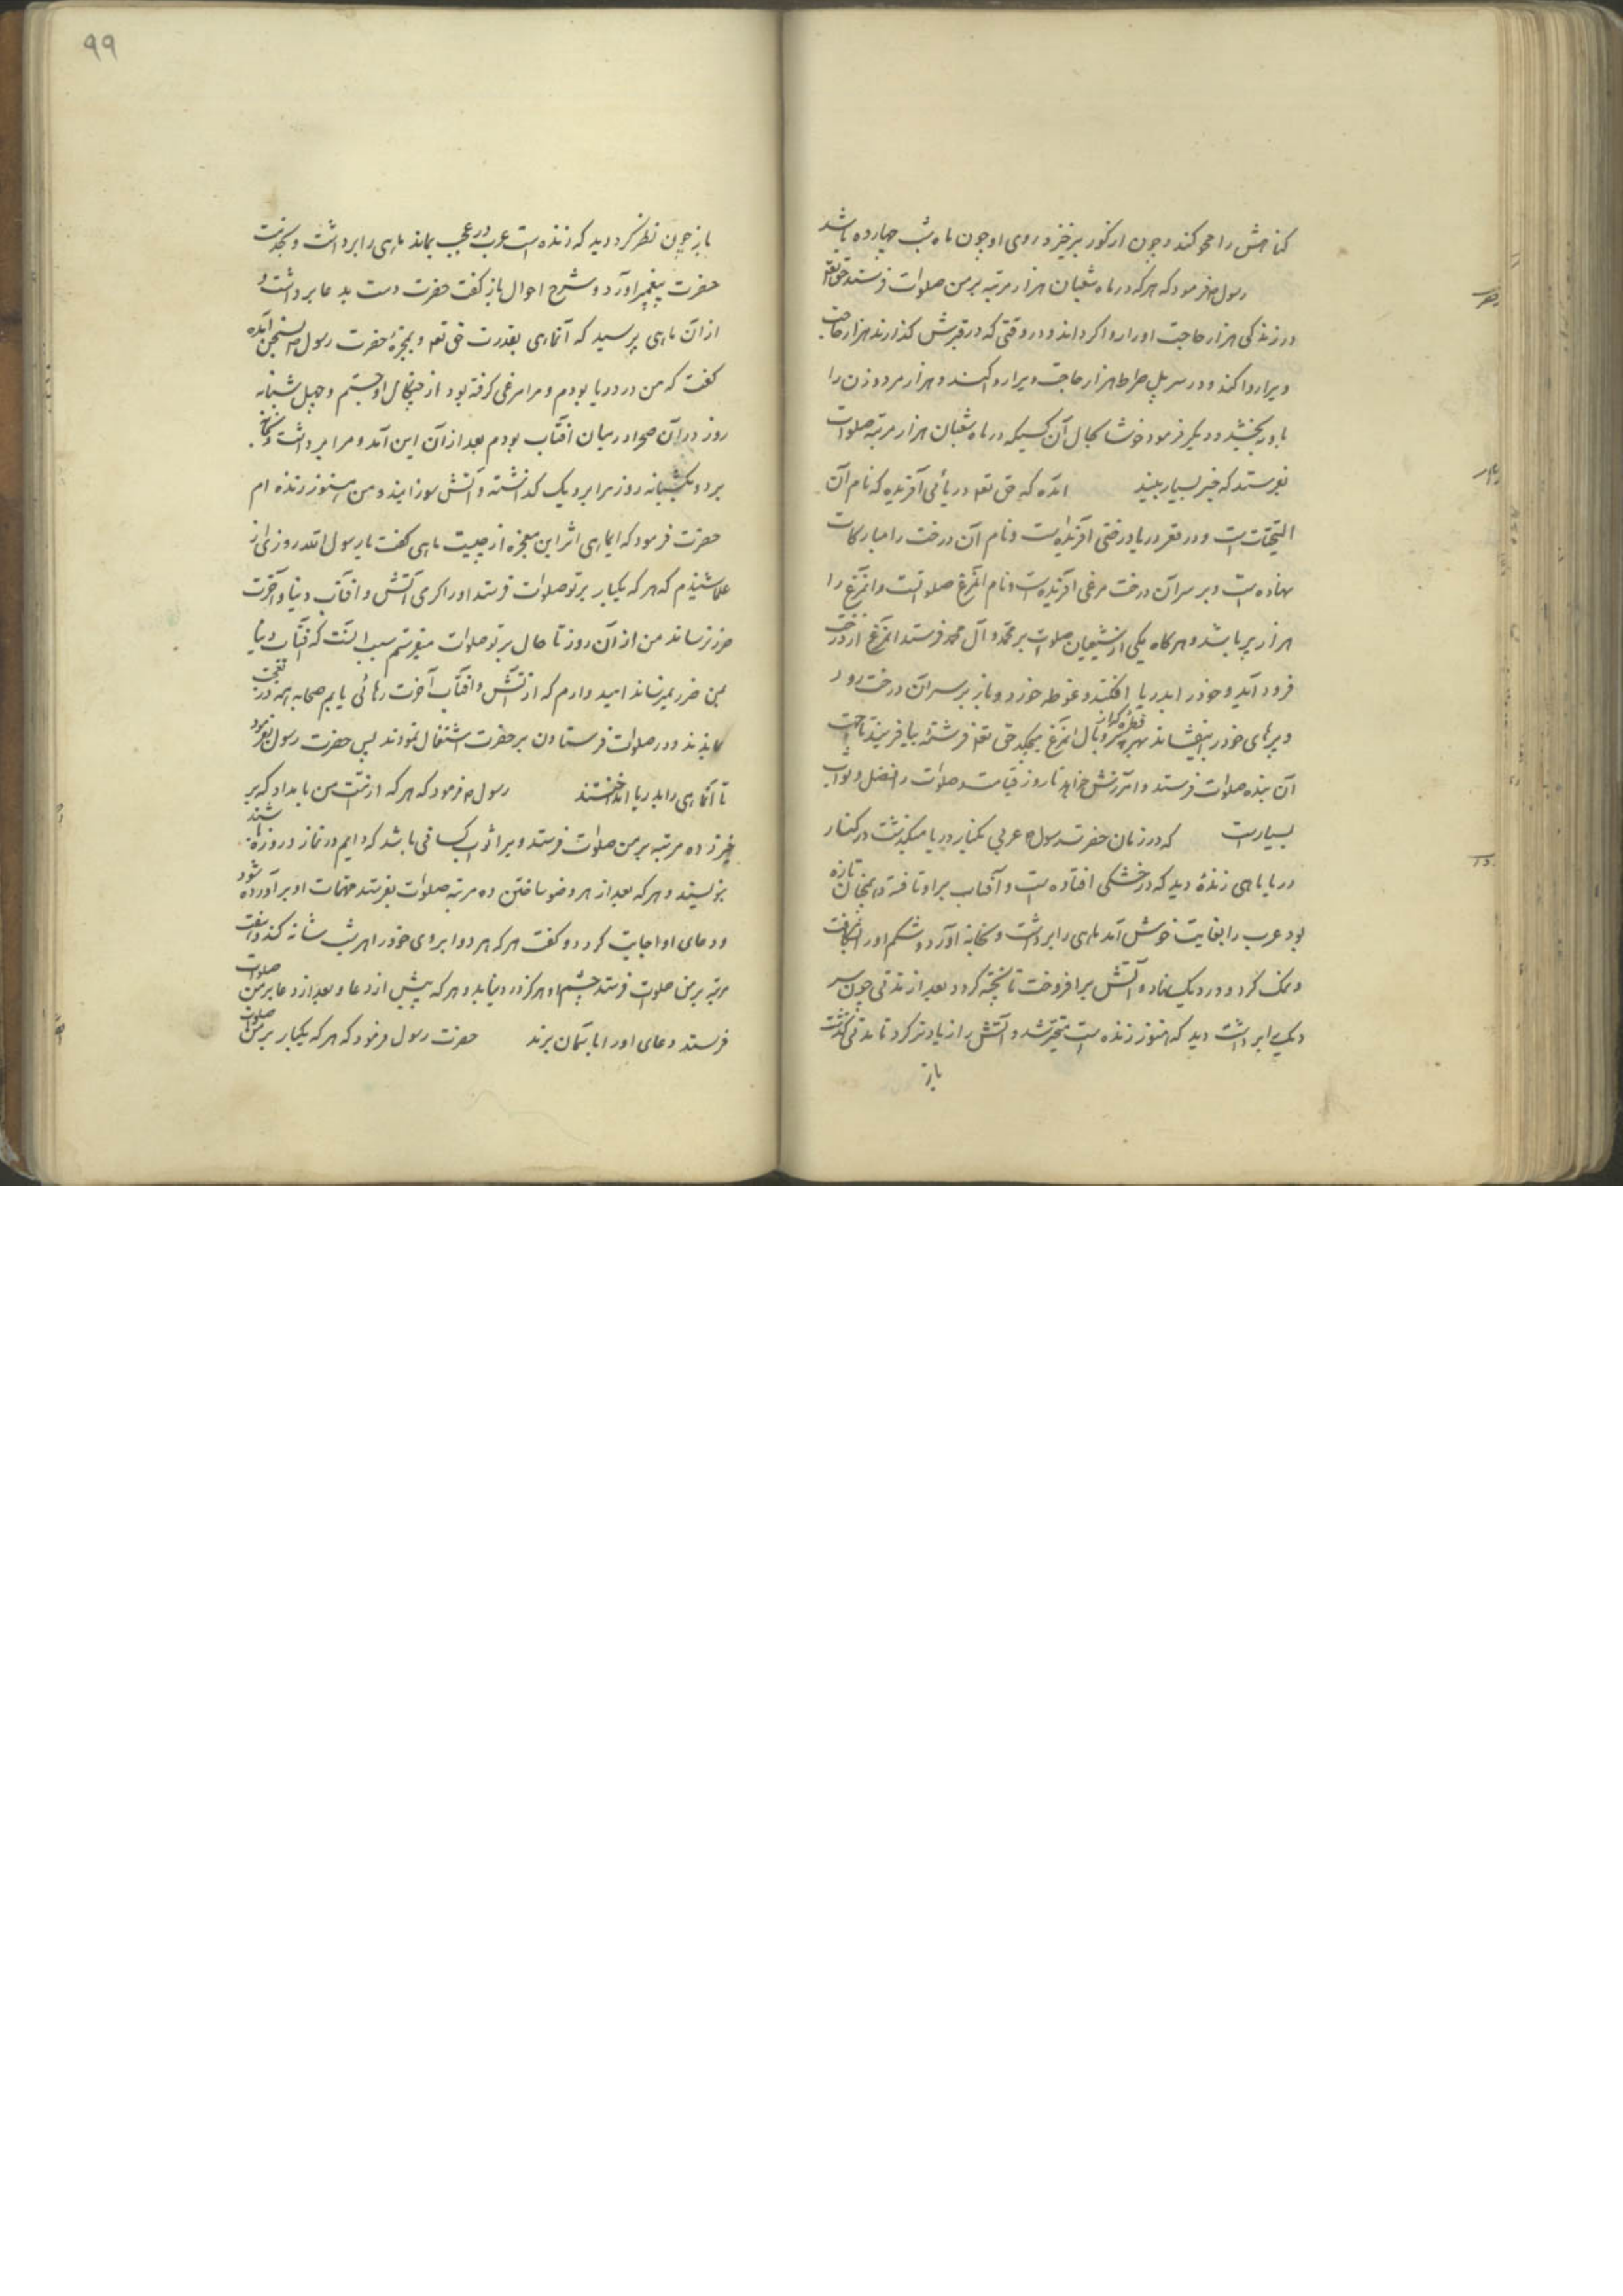 کناهش را محو کند و چون از کور برخیزد روی او چون ماه شب چهارده باشد
رسول ص فرمود که هر که در ماه شعبان هزار مرتبه بر من صلوات فرستد حق تعه
در زندکی هزار حاجت او را روا کرداند و در وقتی که در قبرش کذارند هزار حاجت
ویرا روا کند و در سر پل صراط هزار حاجت ویرا روا کند و هزار مرد و زن را
باو به بخشد و دیکر فرمود خوشا بحال آن کسیکه در ماه شعبان هزار مرتبه صلوات
بفرستد که خیر بسیار بیند آمده که حق تعه دریائی آفریده که نام آن
التحیات است و در قعر دریا درختی آفریده است و نام آن درخت را مبارکات
نهاده است و بر سر آن درخت مرغی آفریده است و نام آنمرغ صلوتست و آنمرغ را
هزار پر باشد و هرکاه یکی از شیعیان صلوات بر محمد و آل محمد فرستد آنمرغ از درخت
فرود آید و خود را بدریا افکند و غوطه خورد و باز بر سر آن درخت رود
و پرهای خود را بیفشاند بهر قطره که از پر و بال آنمرغ بچکد حق تعه فرشته بیافریند تا جهت
آن بنده صلوات فرستد و آمرزش خواهد تا روز قیامت و صلوات را فضل و ثواب
بسیارست که در زمان حضرت رسول ص عربی بکنار دریا میکذشت در کنار
دریا ماهی زندهٔ دید که در خشکی افتاده است و آفتاب بر او تافته و همچنان تازه
بود عرب را بغایت خوش آمد ماهی را برداشت و بخانه آورد و شکم او را شکافت
و نمک کرد و در دیک نهاد و آتش برافروخت تا پخته کردد بعد از مدتی چون سر
دیک را برداشت دید که هنوز زنده است متحیر شد و آتش را زیادتر کرد تا مدتی کذشت
باز
۹۹
باز چون نظر کرد دید که زنده است عرب در عجب بماند ماهی را برداشت و بخدمت
حضرت پیغمبر آورد و شرح احوال باز کفت حضرت دست بدعا برداشت و
از آن ماهی پرسید که آنماهی بقدرت حق تعه و بمعجزهٔ حضرت رسول ص بسخن آمده
کفت که من در دریا بودم و مرا مرغی کرفته بود از چنکال او جستم و چهل شبانه
روز در آن صحرا در میان افتاب بودم بعد از آن این آمد و مرا برداشت و بخانه
برد و یکشبانه روز مرا بر دیک کداشته و آتش سوزانید و من هنوز زنده ام
حضرت فرمود که ایماهی اثر این معجزه از چیست ماهی کفت یا رسول الله روزی از
علما شنیدم که هر که یکبار بر تو صلوات فرستد او را کرمی آتش و افتاب دنیا و آخرت
ضرر نرساند من از آن روز تا حال بر تو صلوات میفرستم سبب اینست که افتاب دنیا
بمن ضرر نمیرساند امید دارم که از آتش و افتاب آخرت رهائی یابم صحابه همه در تعجب
بماندند و در صلوات فرستادن بر حضرت اشتغال نمودند پس حضرت رسول بفرمود
تا آنماهی را بدریا انداختند رسول ص فرمود که هر که از امّت من بامداد که بر
خیزد ده مرتبه بر من صلوات فرستد ویرا ثواب کسانی باشد که دایم در نماز و روزه باشند
بنویسند و هر که بعد از هر وضو ساختن ده مرتبه صلوات بفرستد مهمات او برآورده شود
و دعای او اجابت کردد و کفت هر که هر دو ابروی خود را هر شب شانه کند و هفت
مرتبه بر من صلوات فرستد چشم او هرکز درد نیابد و هر که پیش از دعا و بعد از دعا بر من صلوات
فرستد دعای او را بآسمان برند حضرت رسول فرمود که هر که یکبار بر من صلوات